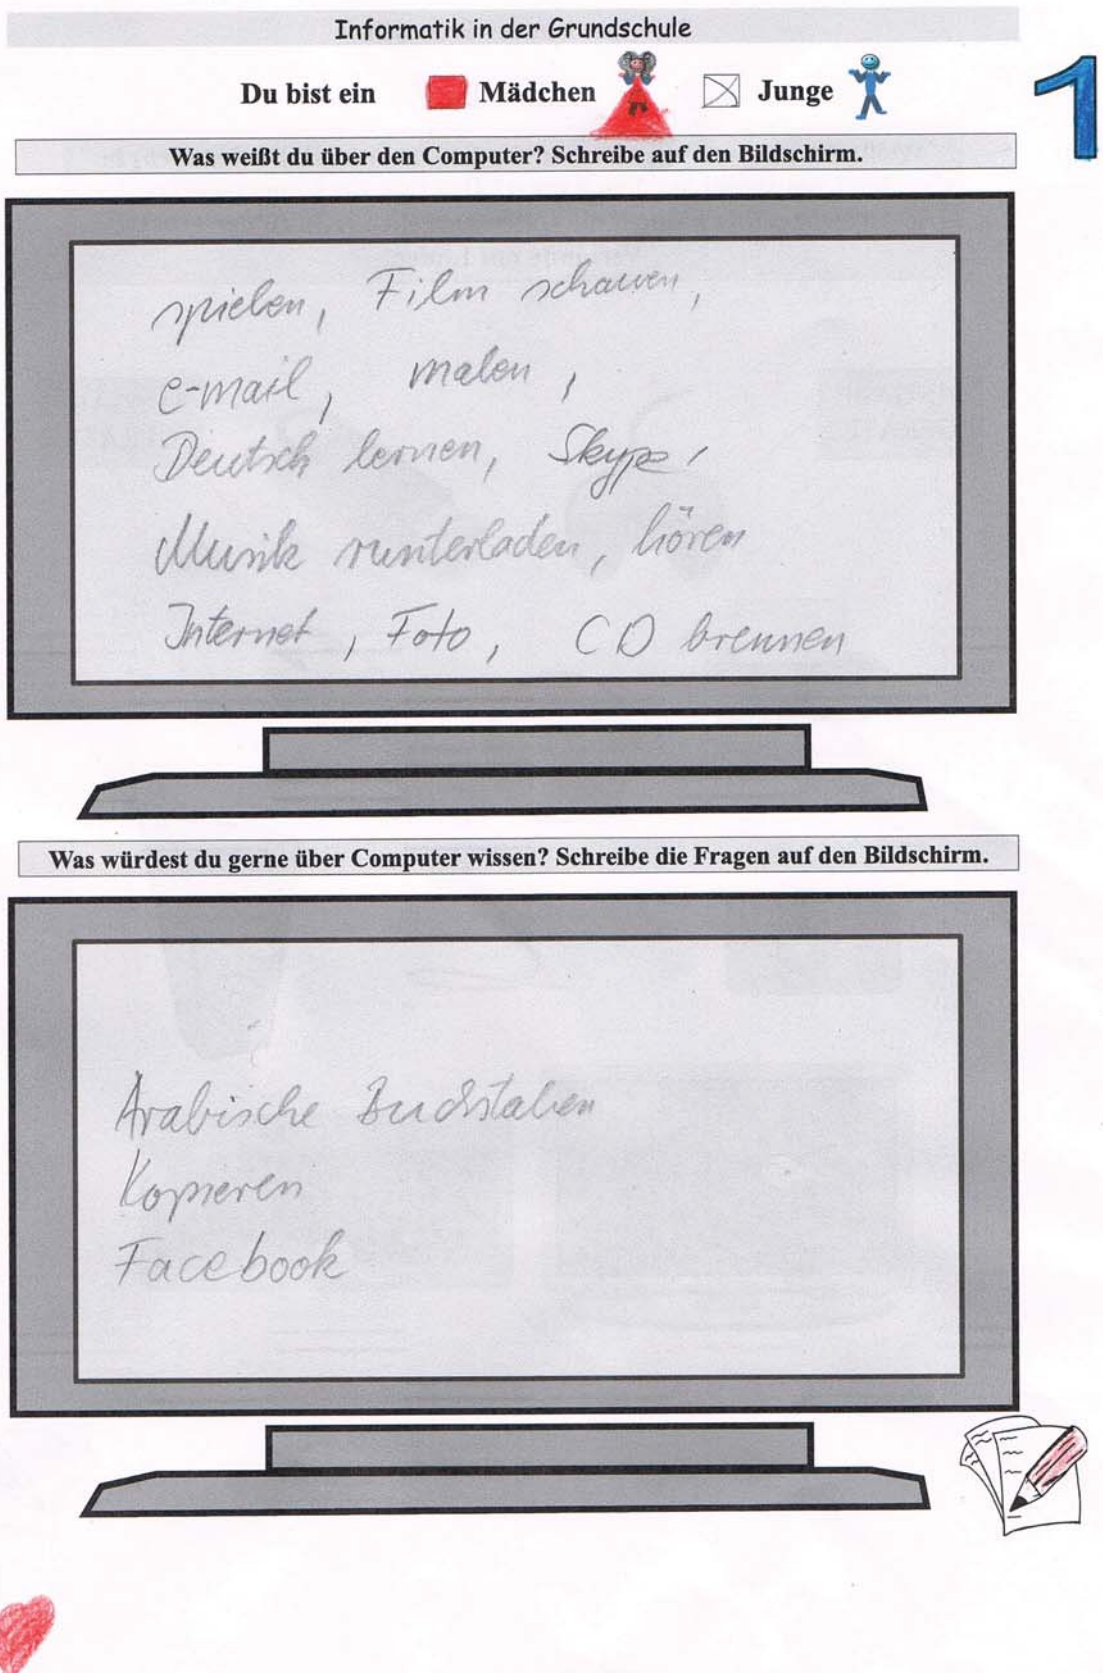 Informatik in der Grundschule
Du bist ein Mädchen Junge
1
Was weißt du über den Computer? Schreibe auf den Bildschirm.
spielen, Film schauen,
e-mail, malen,
Deutsch lernen, Skype,
Musik runterladen, hören
Internet, Foto, CD brennen
Was würdest du gerne über Computer wissen? Schreibe die Fragen auf den Bildschirm.
Arabische Buchstaben
Kopieren
Facebook